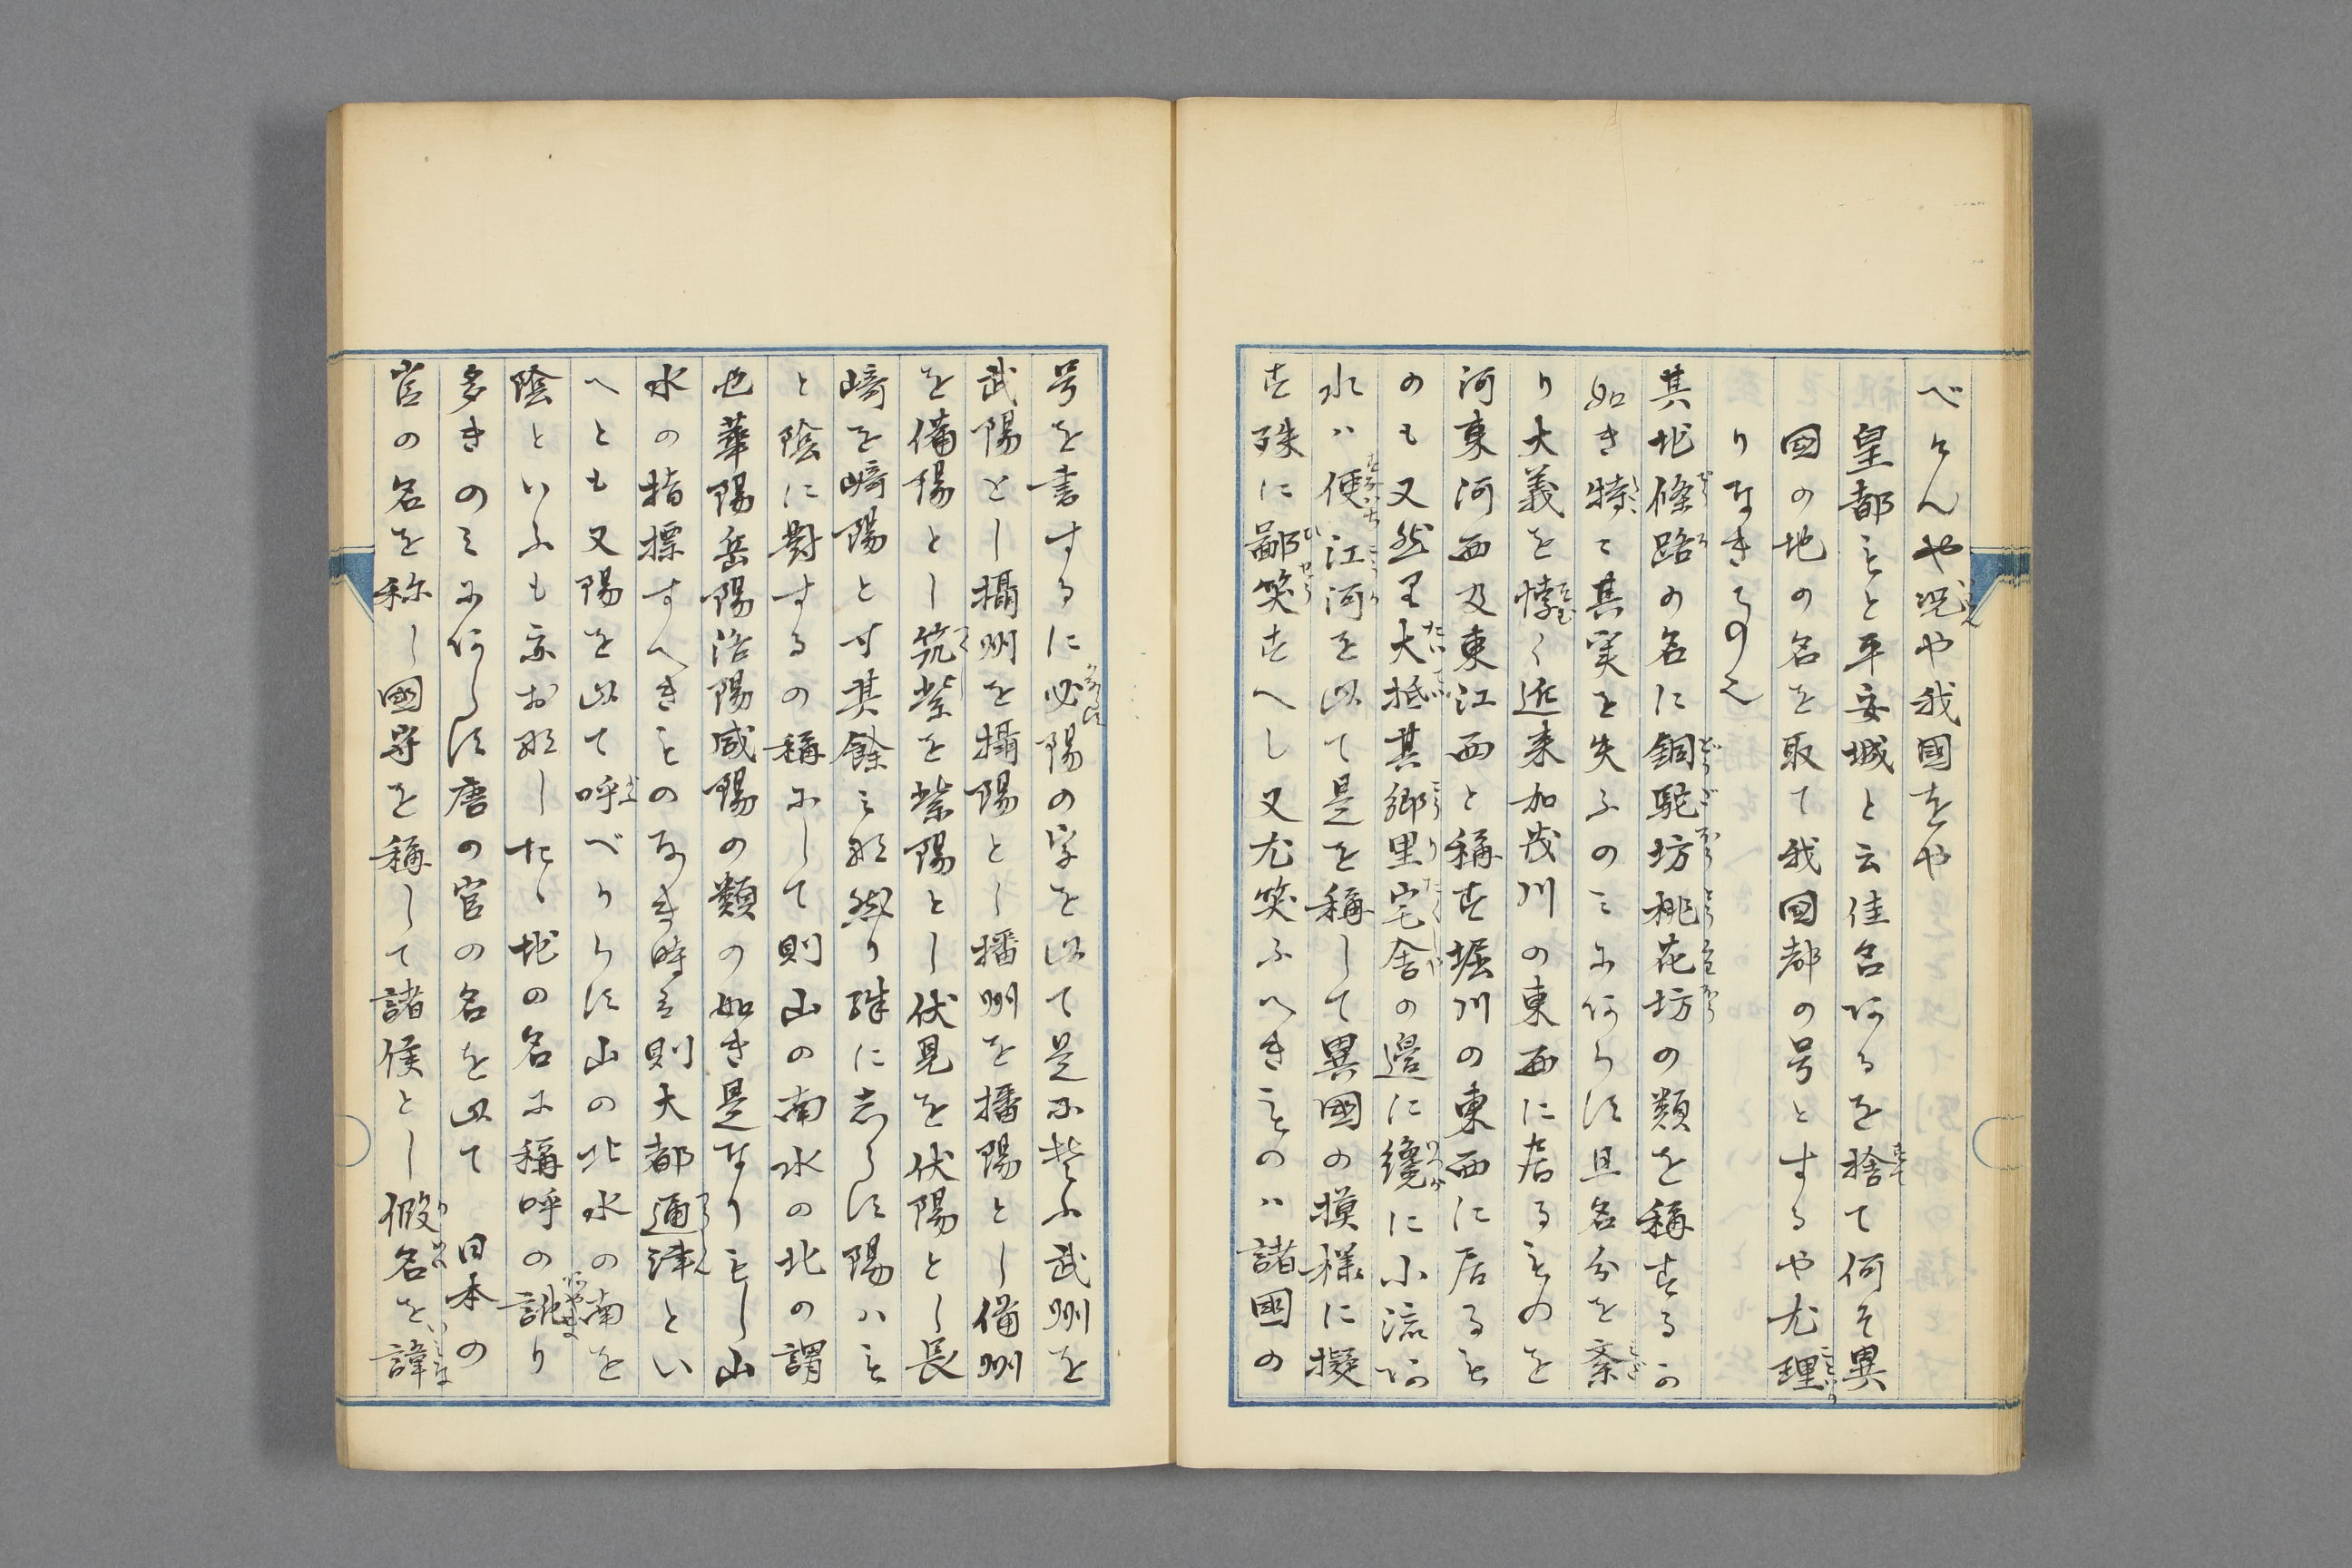 べけんや況や我國をや
皇都もと平安城と云佳名あるを捨て何そ異
国の地の名を取て我国都の号とするや尤理
りなきもの也
其北條路の名に銅駝坊桃花坊の類を称するか
如き特に其実を失ふのミにあらす且名分を紊
り大義を悖く近来加茂川の東西に居るものを
河東河西及東江西と称す堀川の東西に居るも
のも又然り大抵其郷里宅舎の邉に纔に小流あ
水ハ便江河を以て是を稱して異國の摸様に擬
す殊に鄙笑すへし又尤笑ふへきものハ諸國の
号を書するに必陽の字を以て是に埜ふ武州を
武陽とし攝州を攝陽とし播州を播陽とし備州
を備陽とし筑紫を紫陽とし伏見を伏陽とし長
崎を崎陽とす其餘ミな然り殊に志らす陽ハも
と陰に對するの稱にして則山の南水の北の謂
也華陽岳陽洛陽咸陽の類の如き是なりもし山
水の指標すへきものなき時ハ則大都通津とい
へとも又陽を以て呼べからす山の北水の南を
陰といふも亦おなしたゝ地の名に稱呼の訛り
多きのミにあらす唐の官の名を以て　日本の
官の名を称し國守を稱して諸侯とし假名を諱